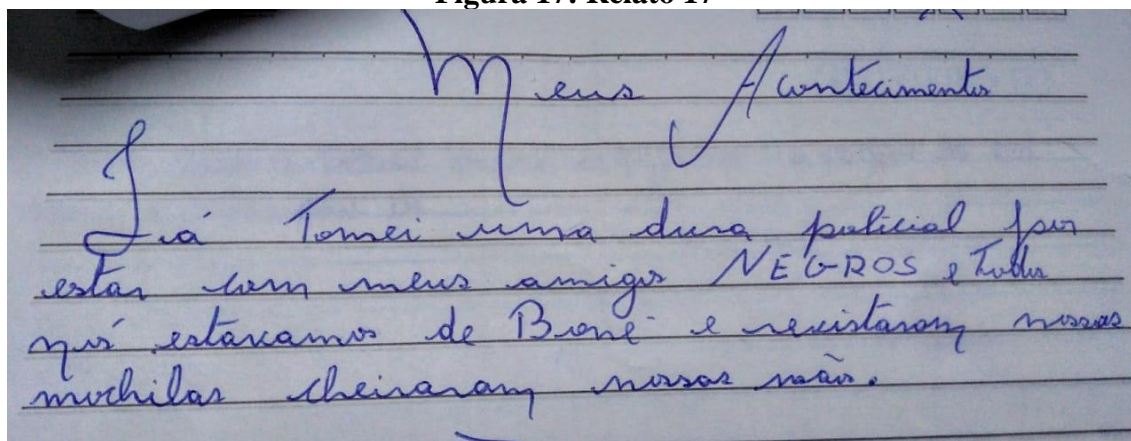 Figura 17: Relato 17
Meus Acontecimentos
Já Tomei uma dura policial por
estar com meus amigos NEGROS e Todos
nós estavamos de Boné e revistaram nossas
mochilas cheiraram nossas mãos.